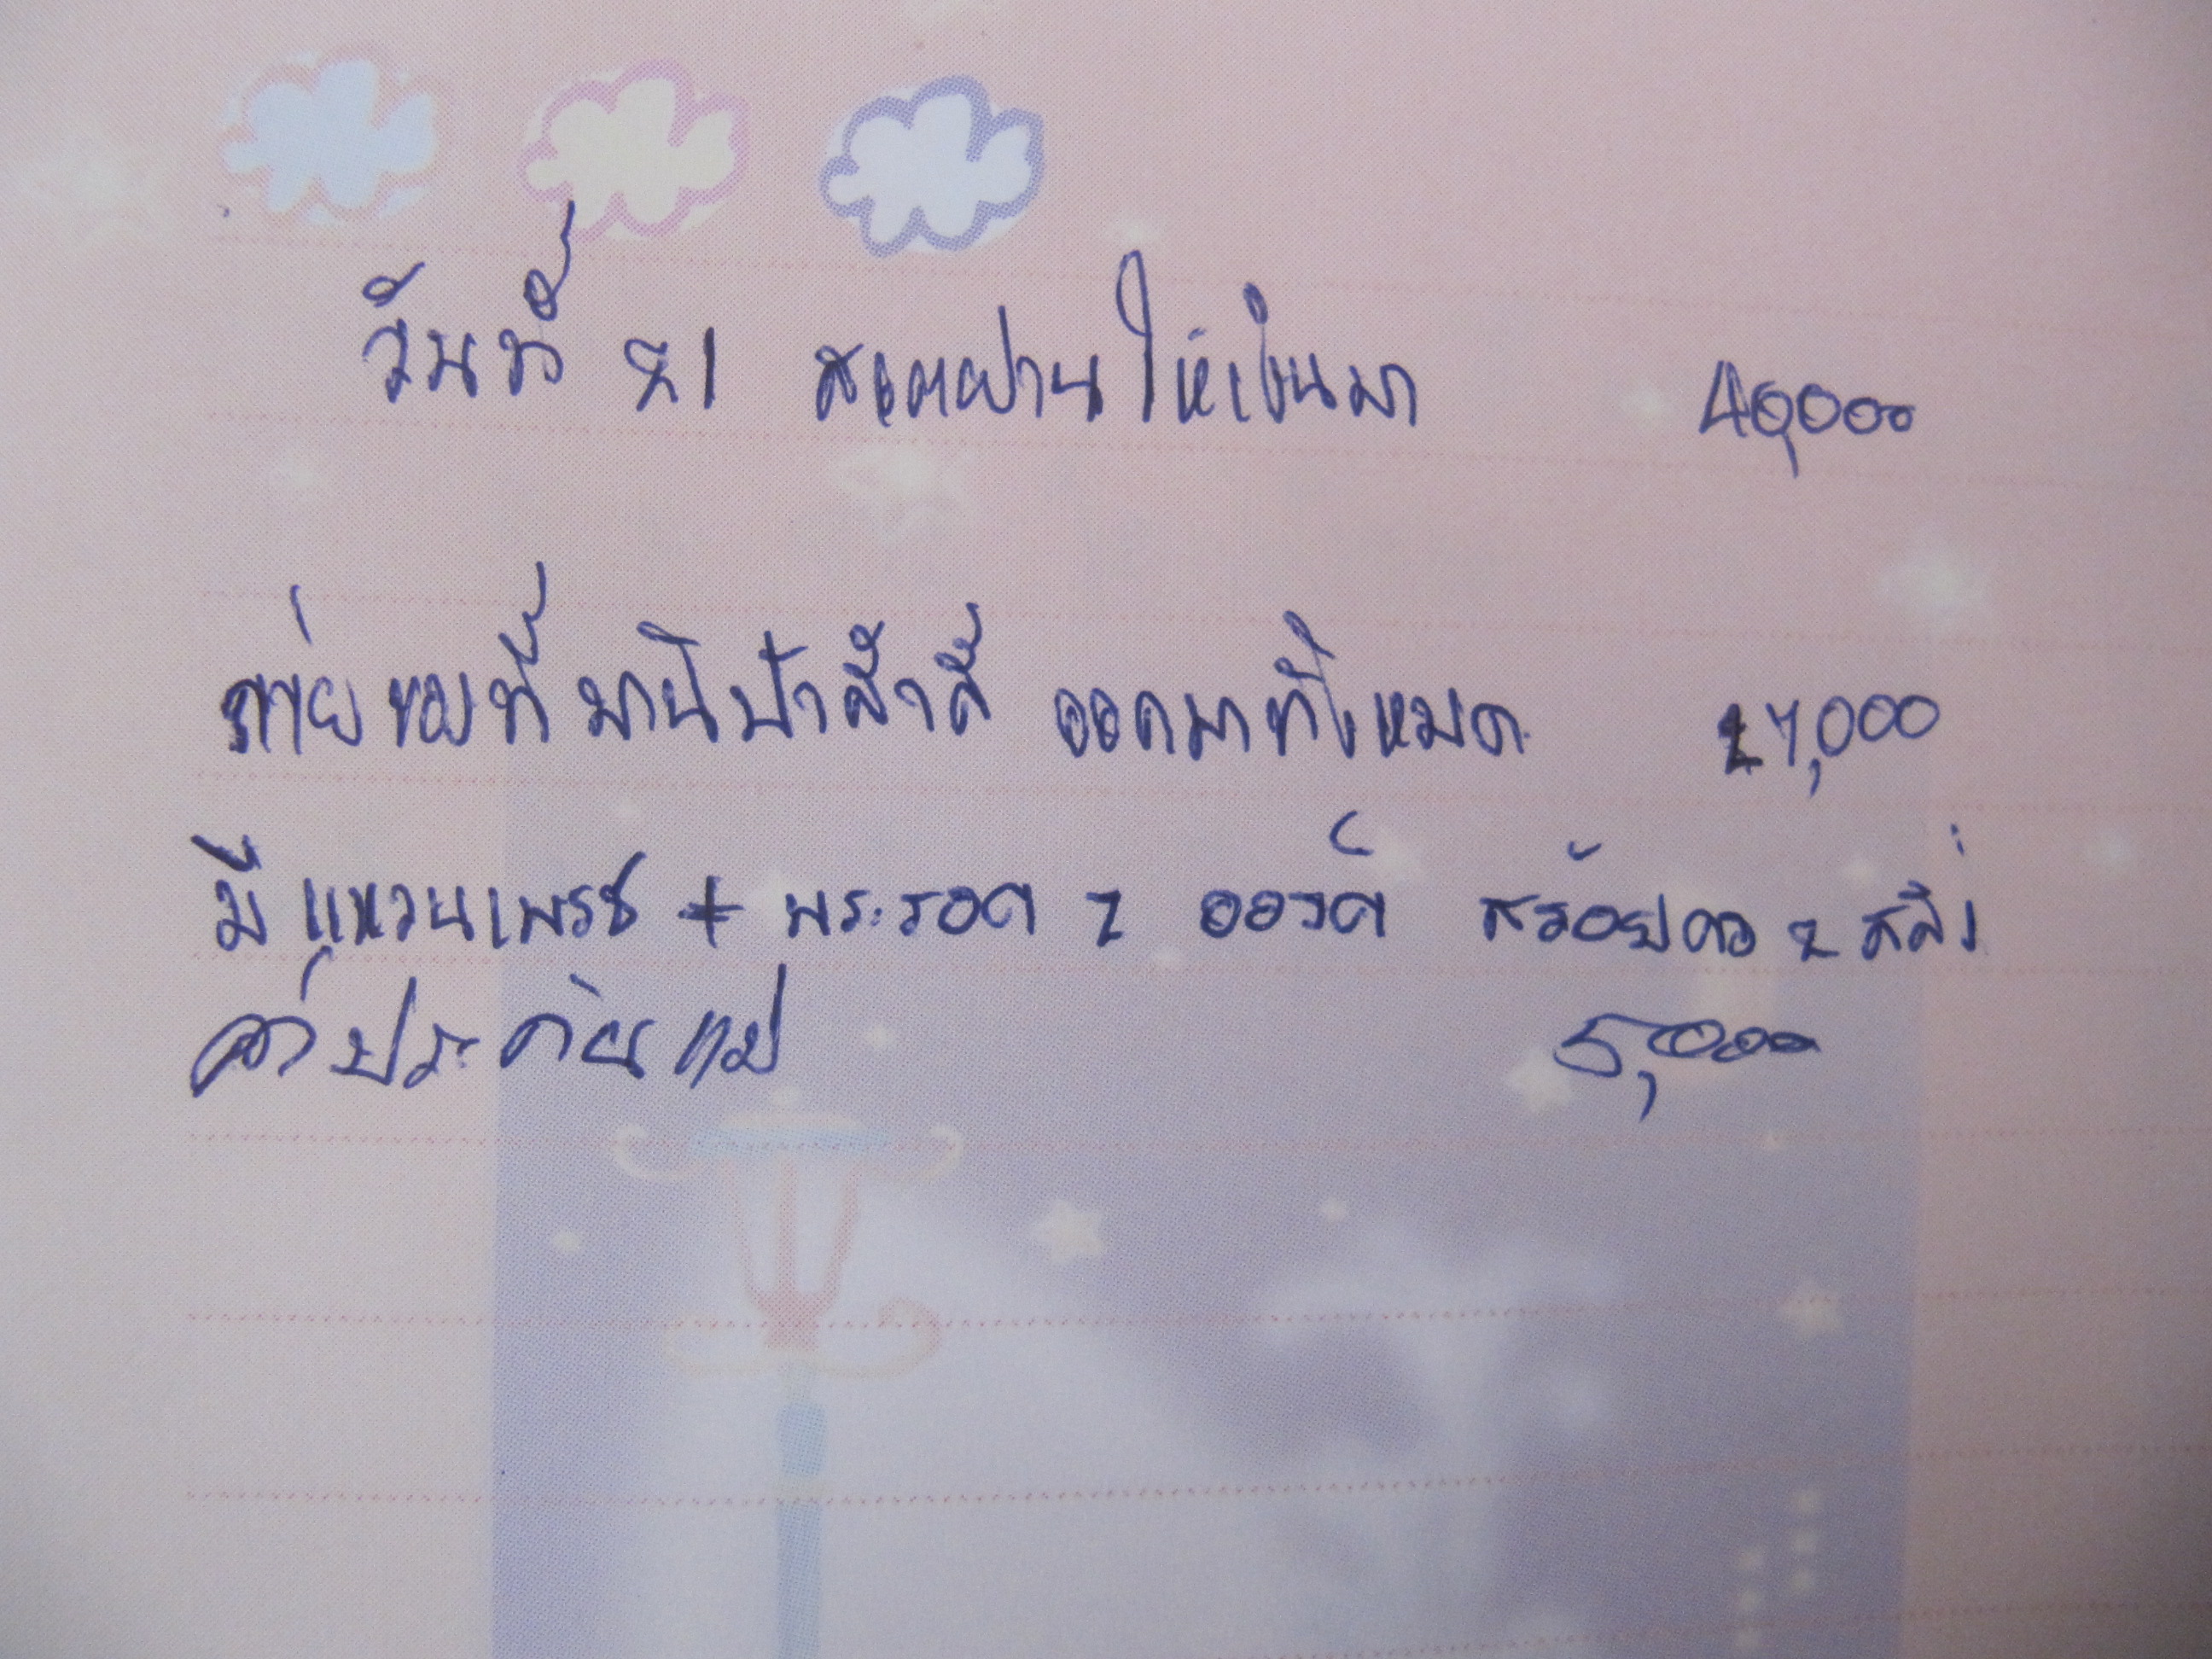 วันที่ 21 สเตฟาน ให้เงินมา 40,000
ถ่ายของที่ มานิ ป้าสำลี ออกมาทั้งหมด 27,000
มี แหวนเพรช + พระรอด 2 องค์ สร้อยคอ 2 สลึง
ค่าประกัน 5,000